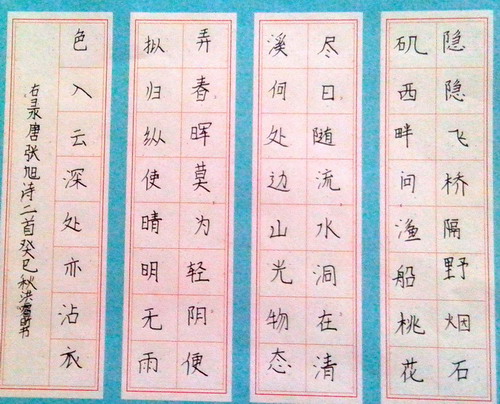 隐隐飞桥隔野烟石
矶西畔问渔船桃花
尽日随流水洞在清
溪何处边山光物态
弄春晖莫为轻阴便
拟归纵使晴明无雨
色入云深处亦沾衣
右录唐张旭诗二首癸巳秋洪书